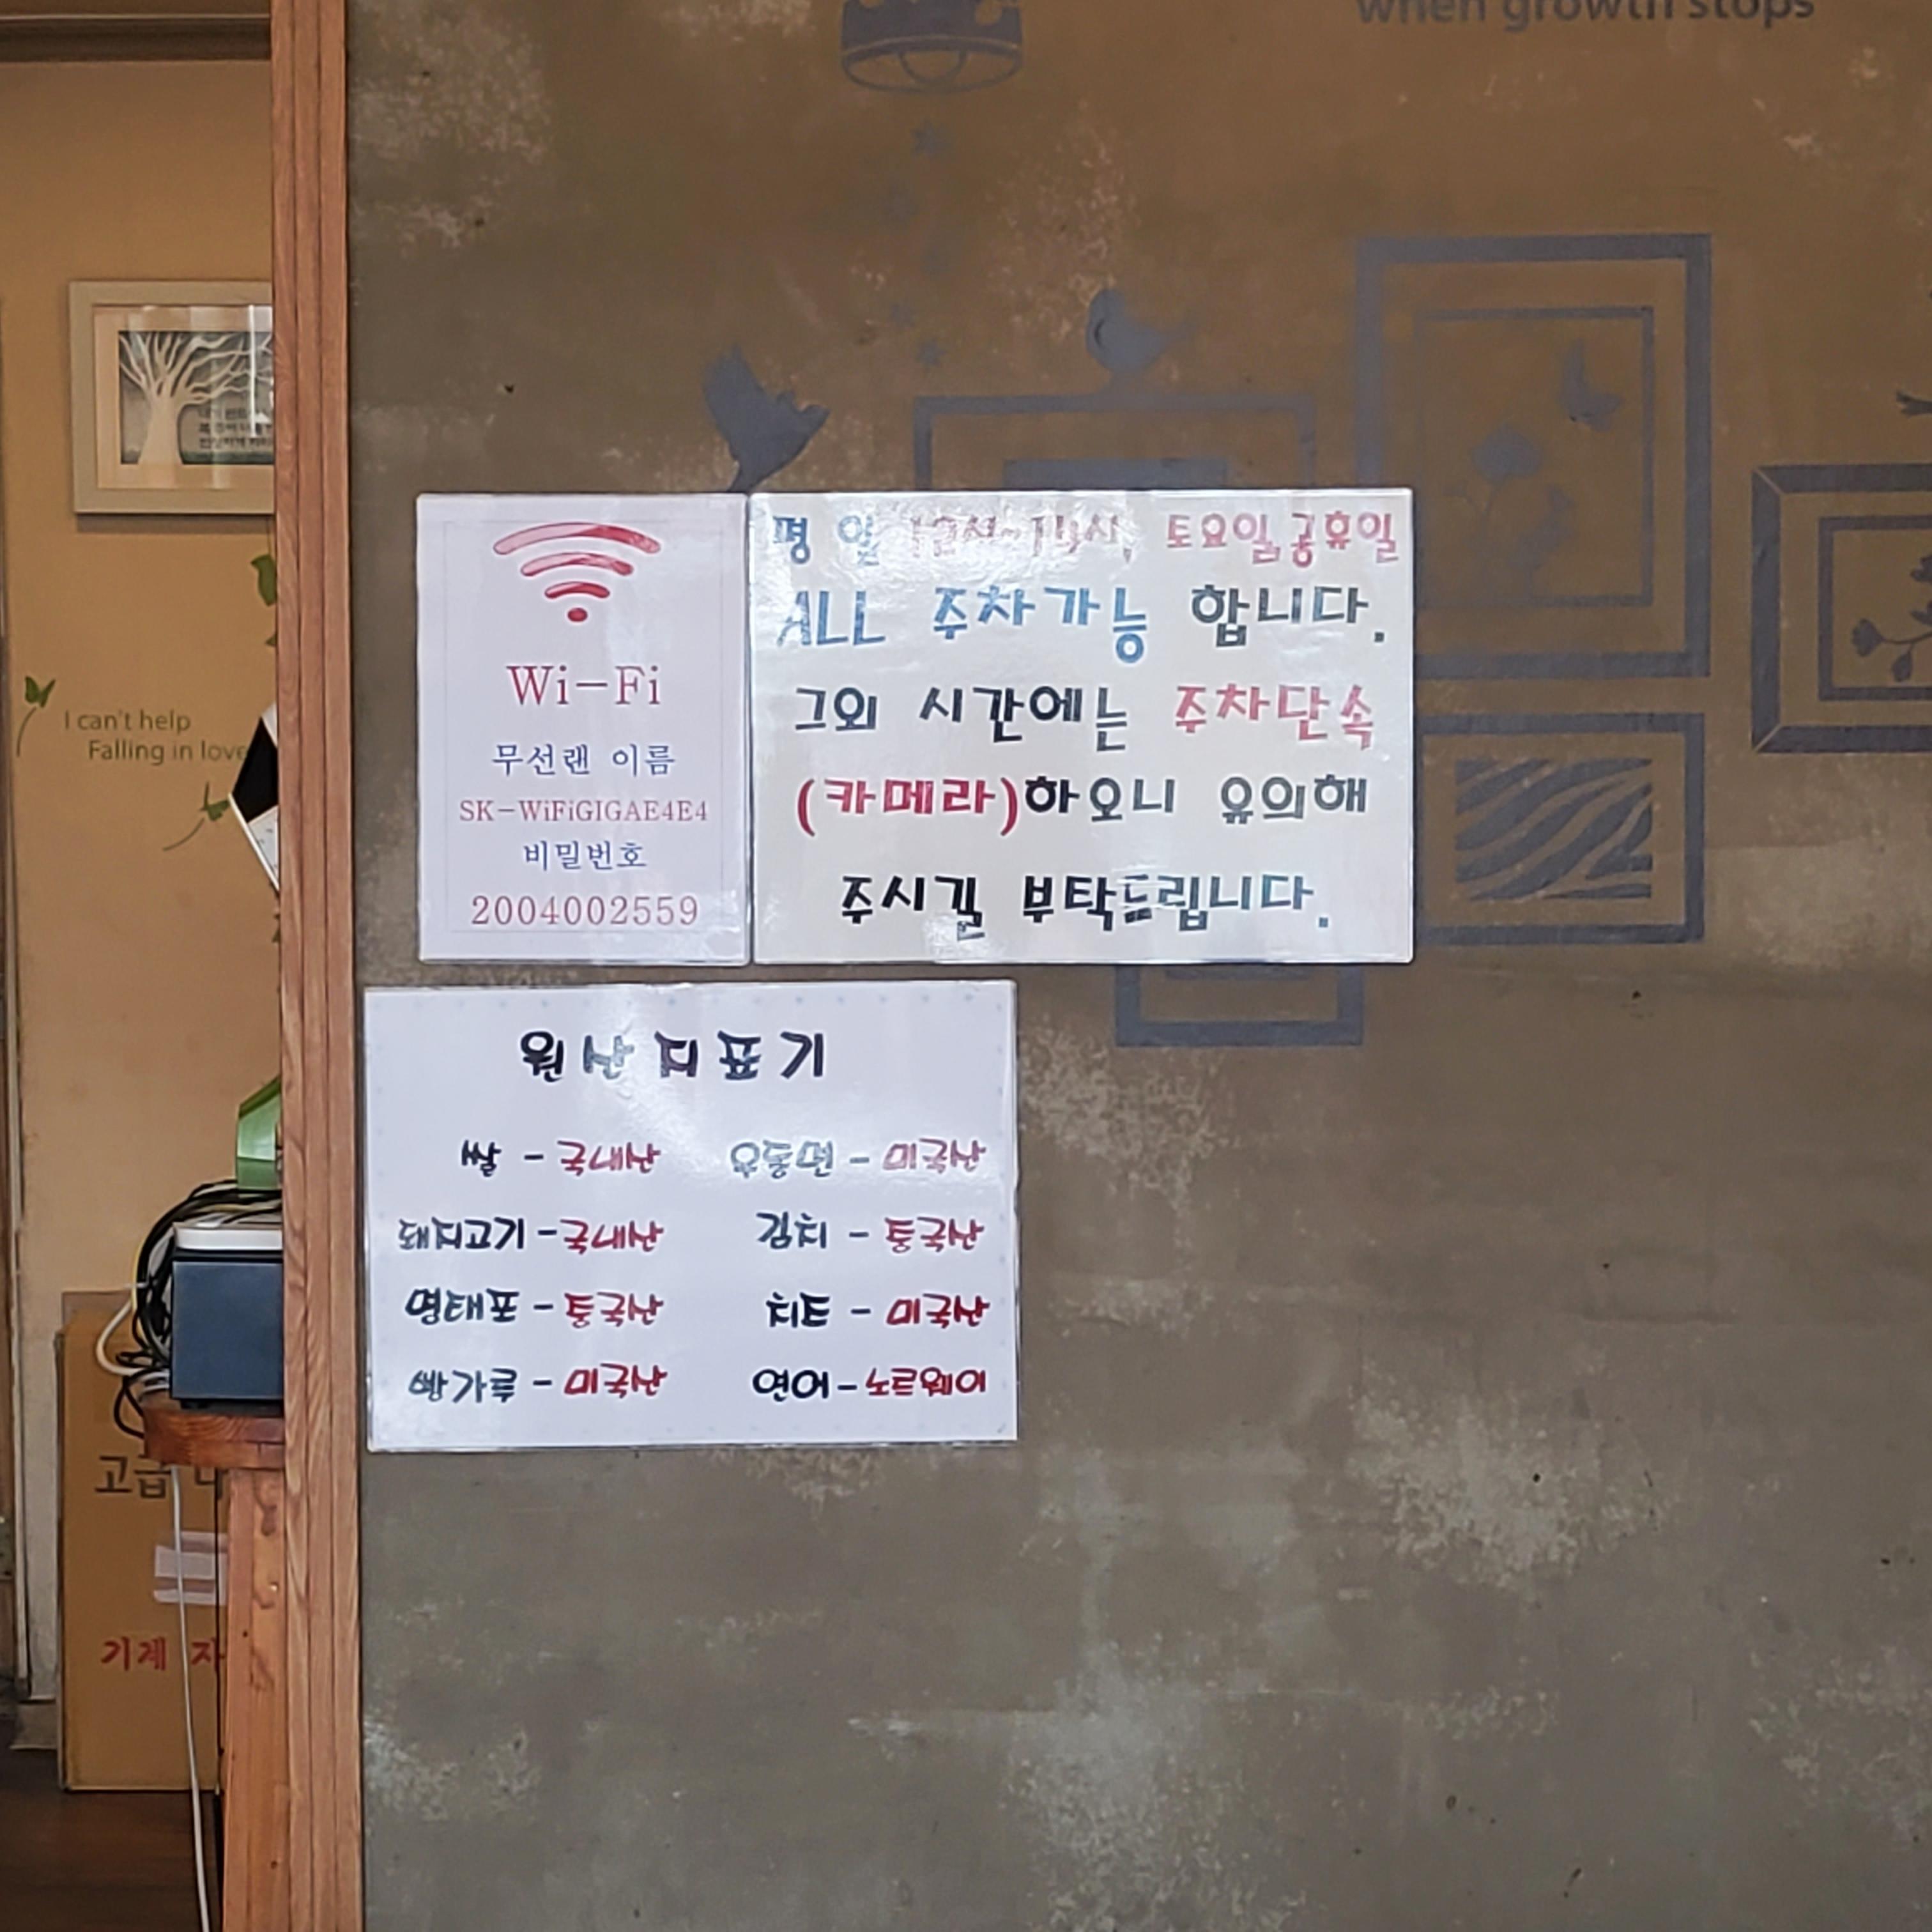 when growth stops
I can't help
Falling in love
Wi-Fi
무선랜 이름
SK-WiFiGIGAE4E4
비밀번호
2004002559
평일 12시~14시, 토요일,공휴일
ALL 주차가능 합니다.
그외 시간에는 주차단속
(카메라)하오니 유의해
주시길 부탁드립니다.
원산지표기
쌀 - 국내산
우동면 - 미국산
돼지고기 - 국내산
김치 - 중국산
명태포 - 중국산
치즈 - 미국산
빵가루 - 미국산
연어 - 노르웨이
고급
기계 자